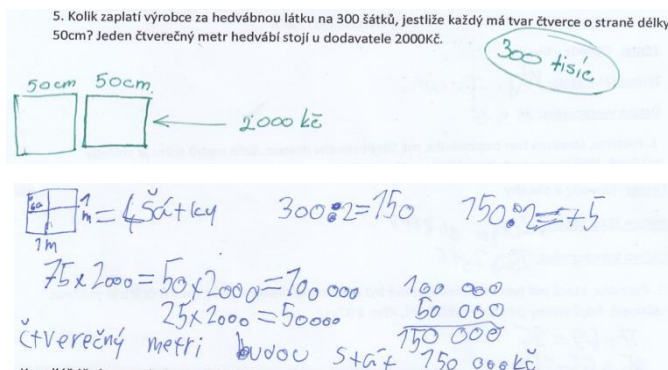 5. Kolik zaplatí výrobce za hedvábnou látku na 300 šátků, jestliže každý má tvar čtverce o straně délky
50cm? Jeden čtverečný metr hedvábí stojí u dodavatele 2000Kč.
300 tisíc
50cm 50cm
2000 kč
1m = 4 šátky 300:2=150 150:2=75
1m
75x2000=50x2000=100 000 100 000
25x2000=50000 50 000
150 000
čtverečný metri budou stát 150 000kč